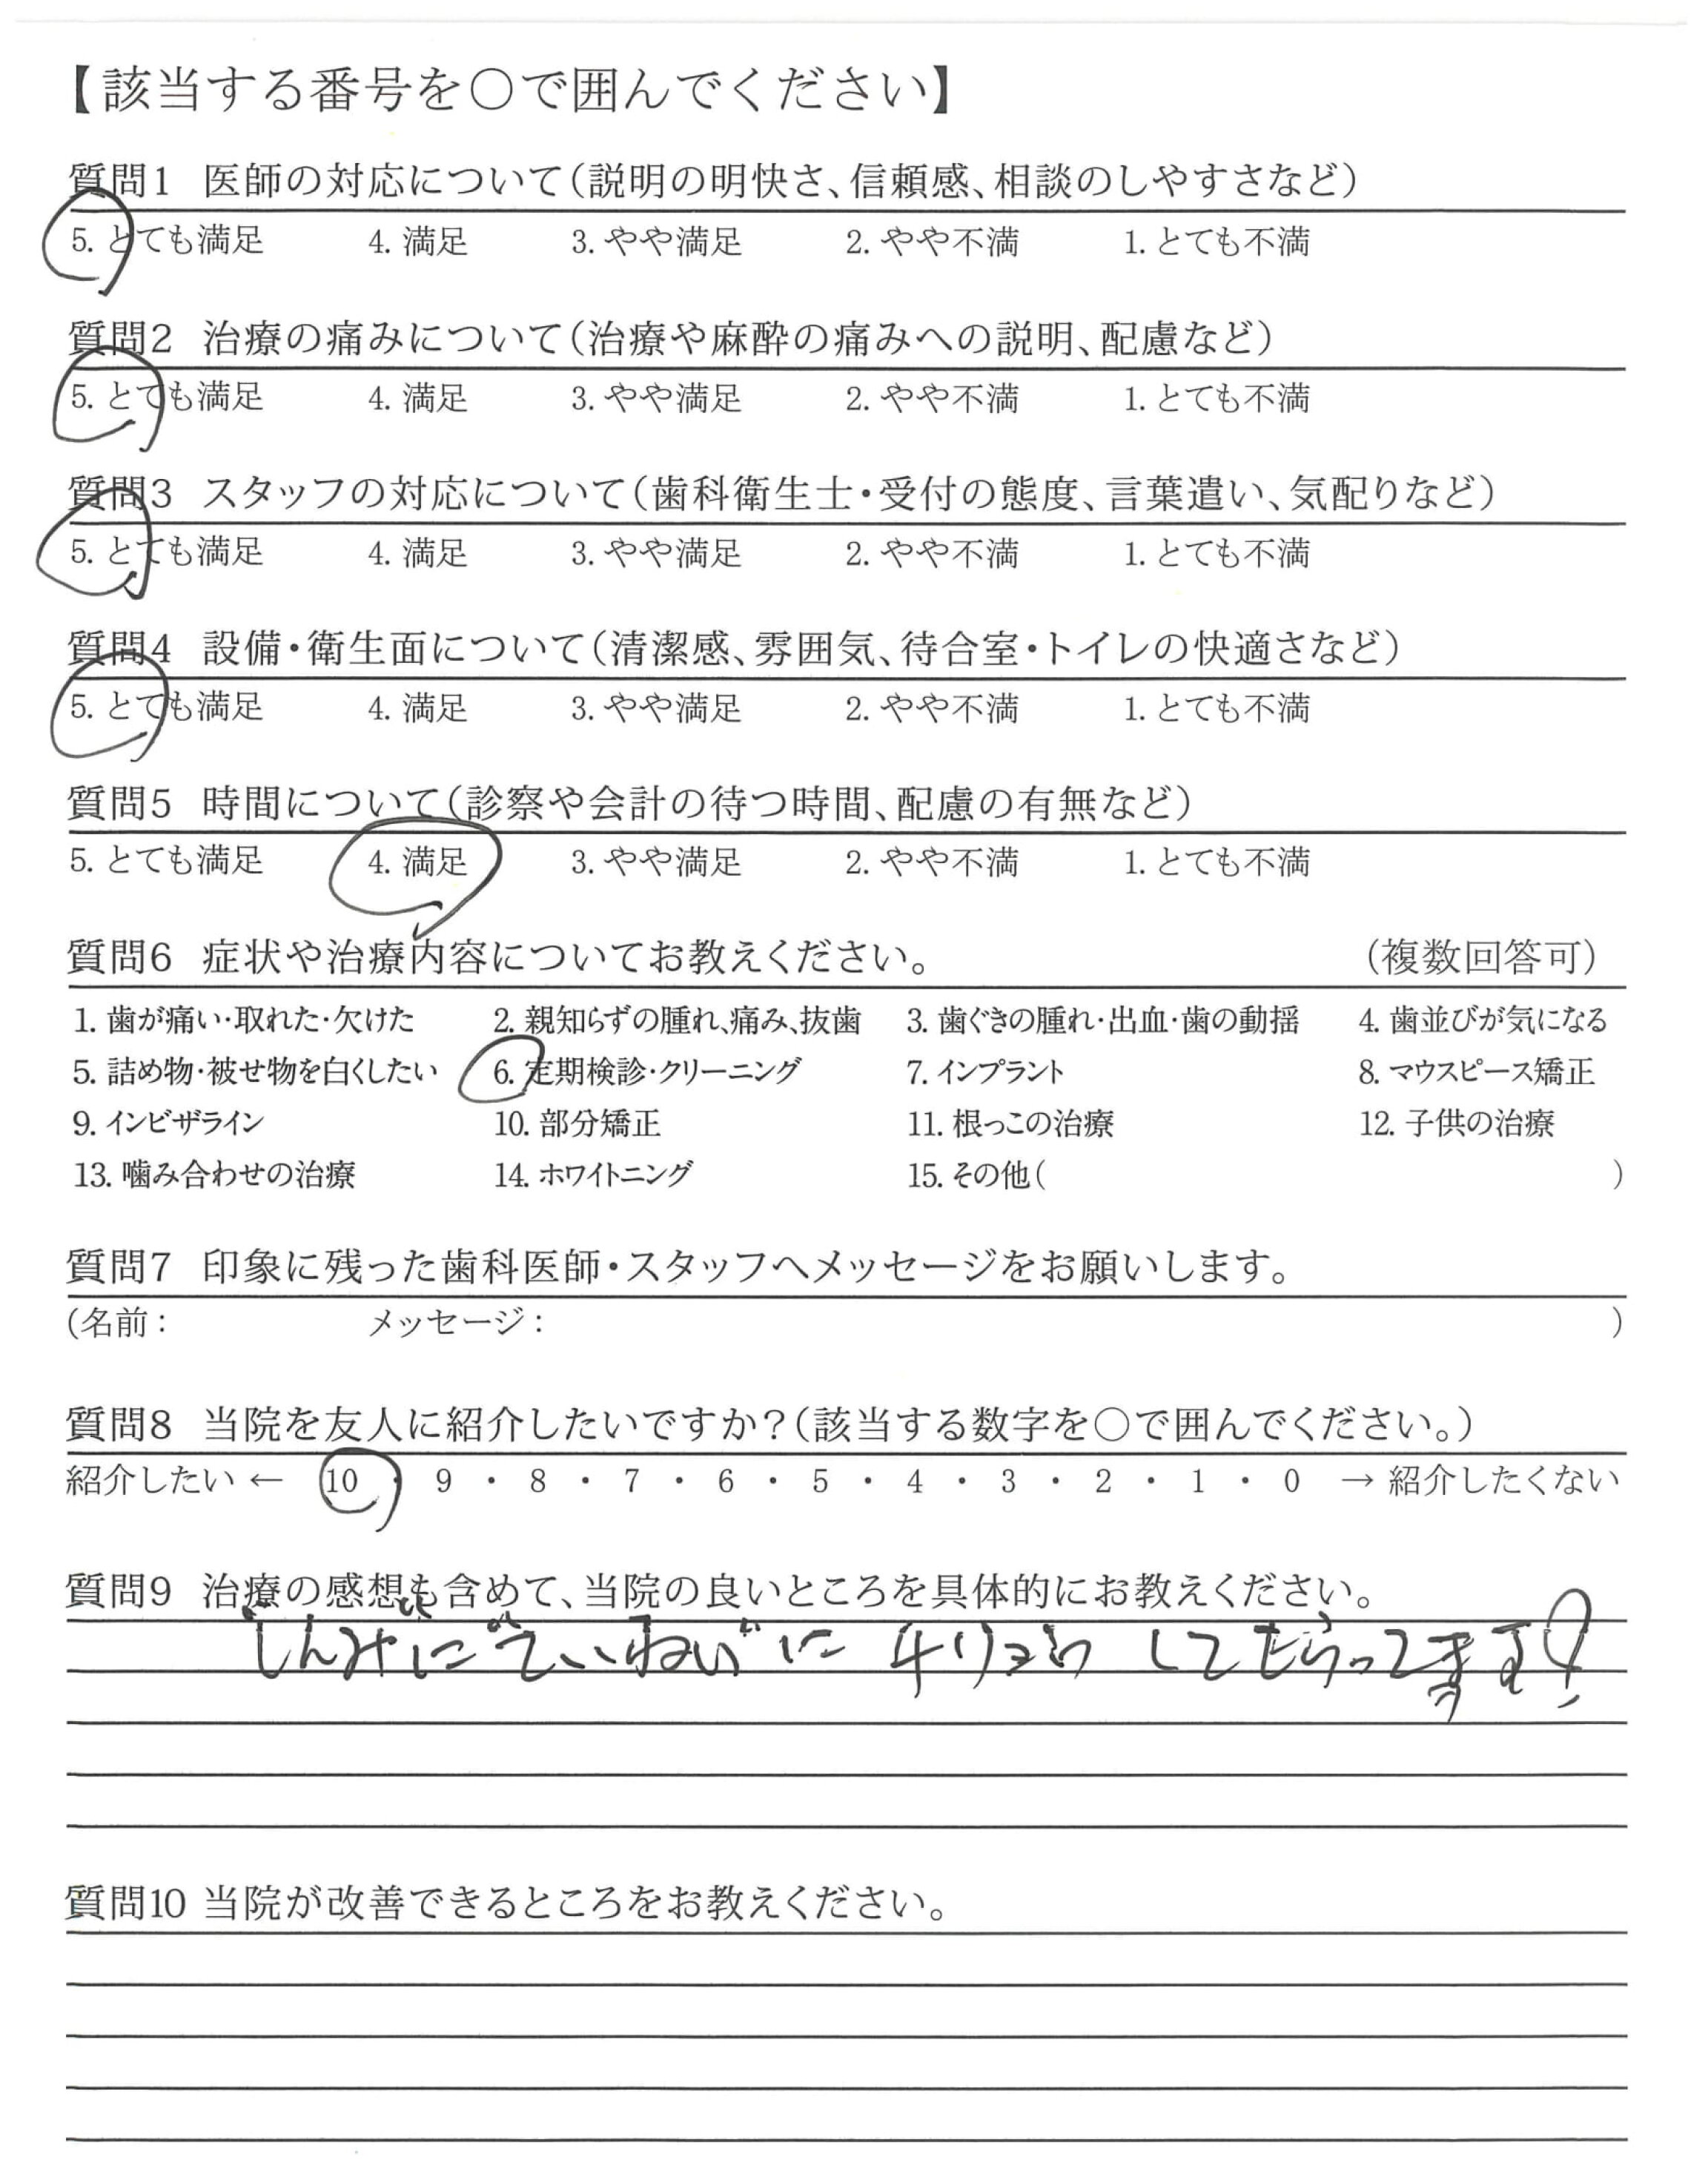 【該当する番号を○で囲んでください】
質問1 医師の対応について(説明の明快さ、信頼感、相談のしやすさなど)
5. とても満足 4. 満足 3. やや満足 2. やや不満 1. とても不満
質問2 治療の痛みについて(治療や麻酔の痛みへの説明、配慮など)
5. とても満足 4. 満足 3. やや満足 2. やや不満 1. とても不満
質問3 スタッフの対応について(歯科衛生士・受付の態度、言葉遣い、気配りなど)
5. とても満足 4. 満足 3. やや満足 2. やや不満 1. とても不満
質問4 設備・衛生面について(清潔感、雰囲気、待合室・トイレの快適さなど)
5. とても満足 4. 満足 3. やや満足 2. やや不満 1. とても不満
質問5 時間について(診察や会計の待つ時間、配慮の有無など)
5. とても満足 4. 満足 3. やや満足 2. やや不満 1. とても不満
質問6 症状や治療内容についてお教えください。 (複数回答可)
1. 歯が痛い・取れた・欠けた 2. 親知らずの腫れ、痛み、抜歯 3. 歯ぐきの腫れ・出血・歯の動揺 4. 歯並びが気になる
5. 詰め物・被せ物を白くしたい 6. 定期検診・クリーニング 7. インプラント 8. マウスピース矯正
9. インビザライン 10. 部分矯正 11. 根っこの治療 12. 子供の治療
13. 噛み合わせの治療 14. ホワイトニング 15. その他( )
質問7 印象に残った歯科医師・スタッフへメッセージをお願いします。
(名前: メッセージ: )
質問8 当院を友人に紹介したいですか?(該当する数字を○で囲んでください。)
紹介したい ← 10 ・ 9 ・ 8 ・ 7 ・ 6 ・ 5 ・ 4 ・ 3 ・ 2 ・ 1 ・ 0 → 紹介したくない
質問9 治療の感想も含めて、当院の良いところを具体的にお教えください。
ていねいに チリョウ してもらってます!
質問10 当院が改善できるところをお教えください。